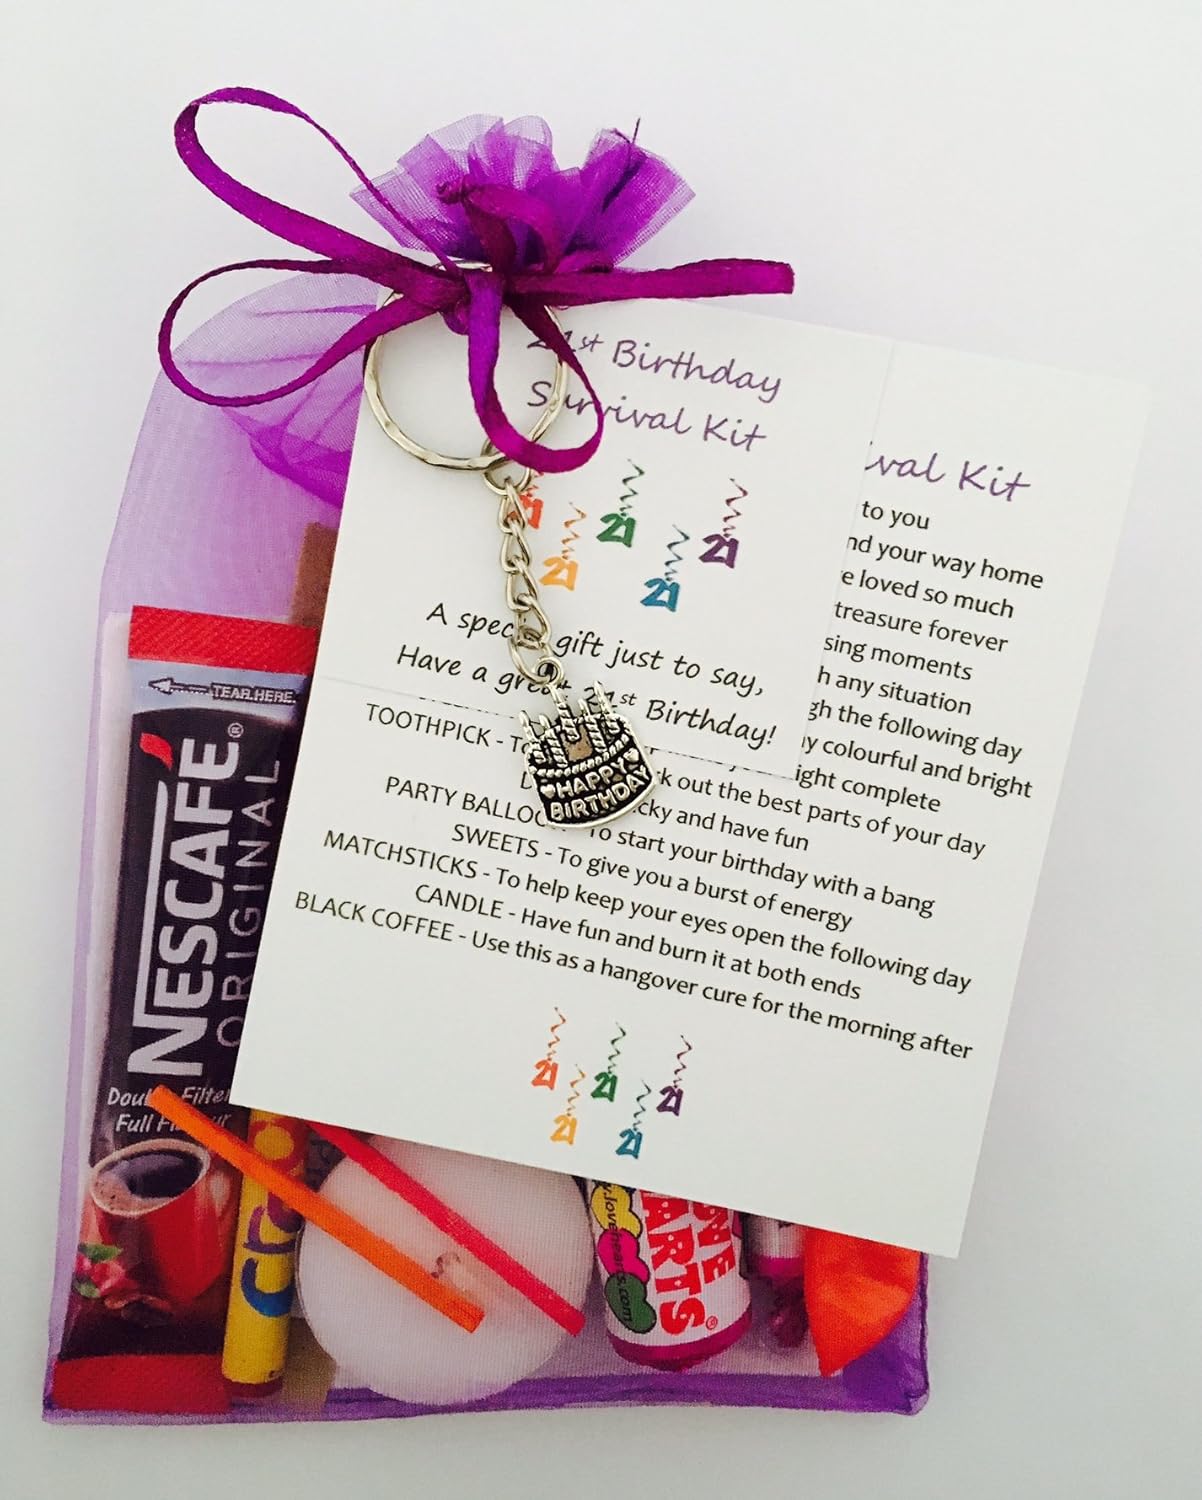 21st Birthday
Survival Kit
21
21
21
21
21
A special gift just to say,
Have a great 21st Birthday!
ival Kit
to you
nd your way home
e loved so much
treasure forever
sing moments
h any situation
gh the following day
y colourful and bright
ight complete
TOOTHPICK - To
k out the best parts of your day
cky and have fun
PARTY BALLOON - To start your birthday with a bang
SWEETS - To give you a burst of energy
MATCHSTICKS - To help keep your eyes open the following day
CANDLE - Have fun and burn it at both ends
BLACK COFFEE - Use this as a hangover cure for the morning after
21
21
21
21
21
HAPPY
BIRTHDAY
TEAR HERE
NESCAFÉ®
ORIGINAL
Double Filter
Full Flavour